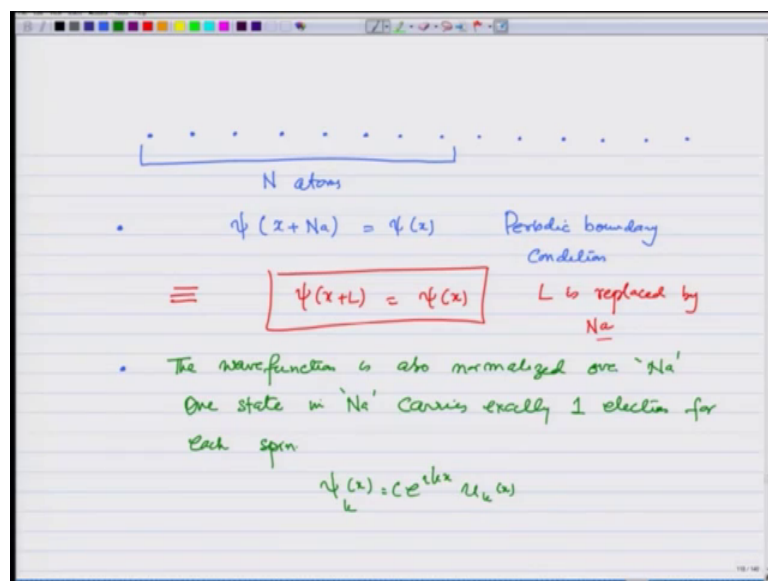 N atoms
• ψ(x+Na) = ψ(x) Periodic boundary
Condition
≡ ψ(x+L) = ψ(x) L is replaced by
Na
• The wavefunction is also normalized over 'Na'
One state in 'Na' carries exactly 1 electron for
each spin.
ψₖ(x) = C e^{ikx} uₖ(x)